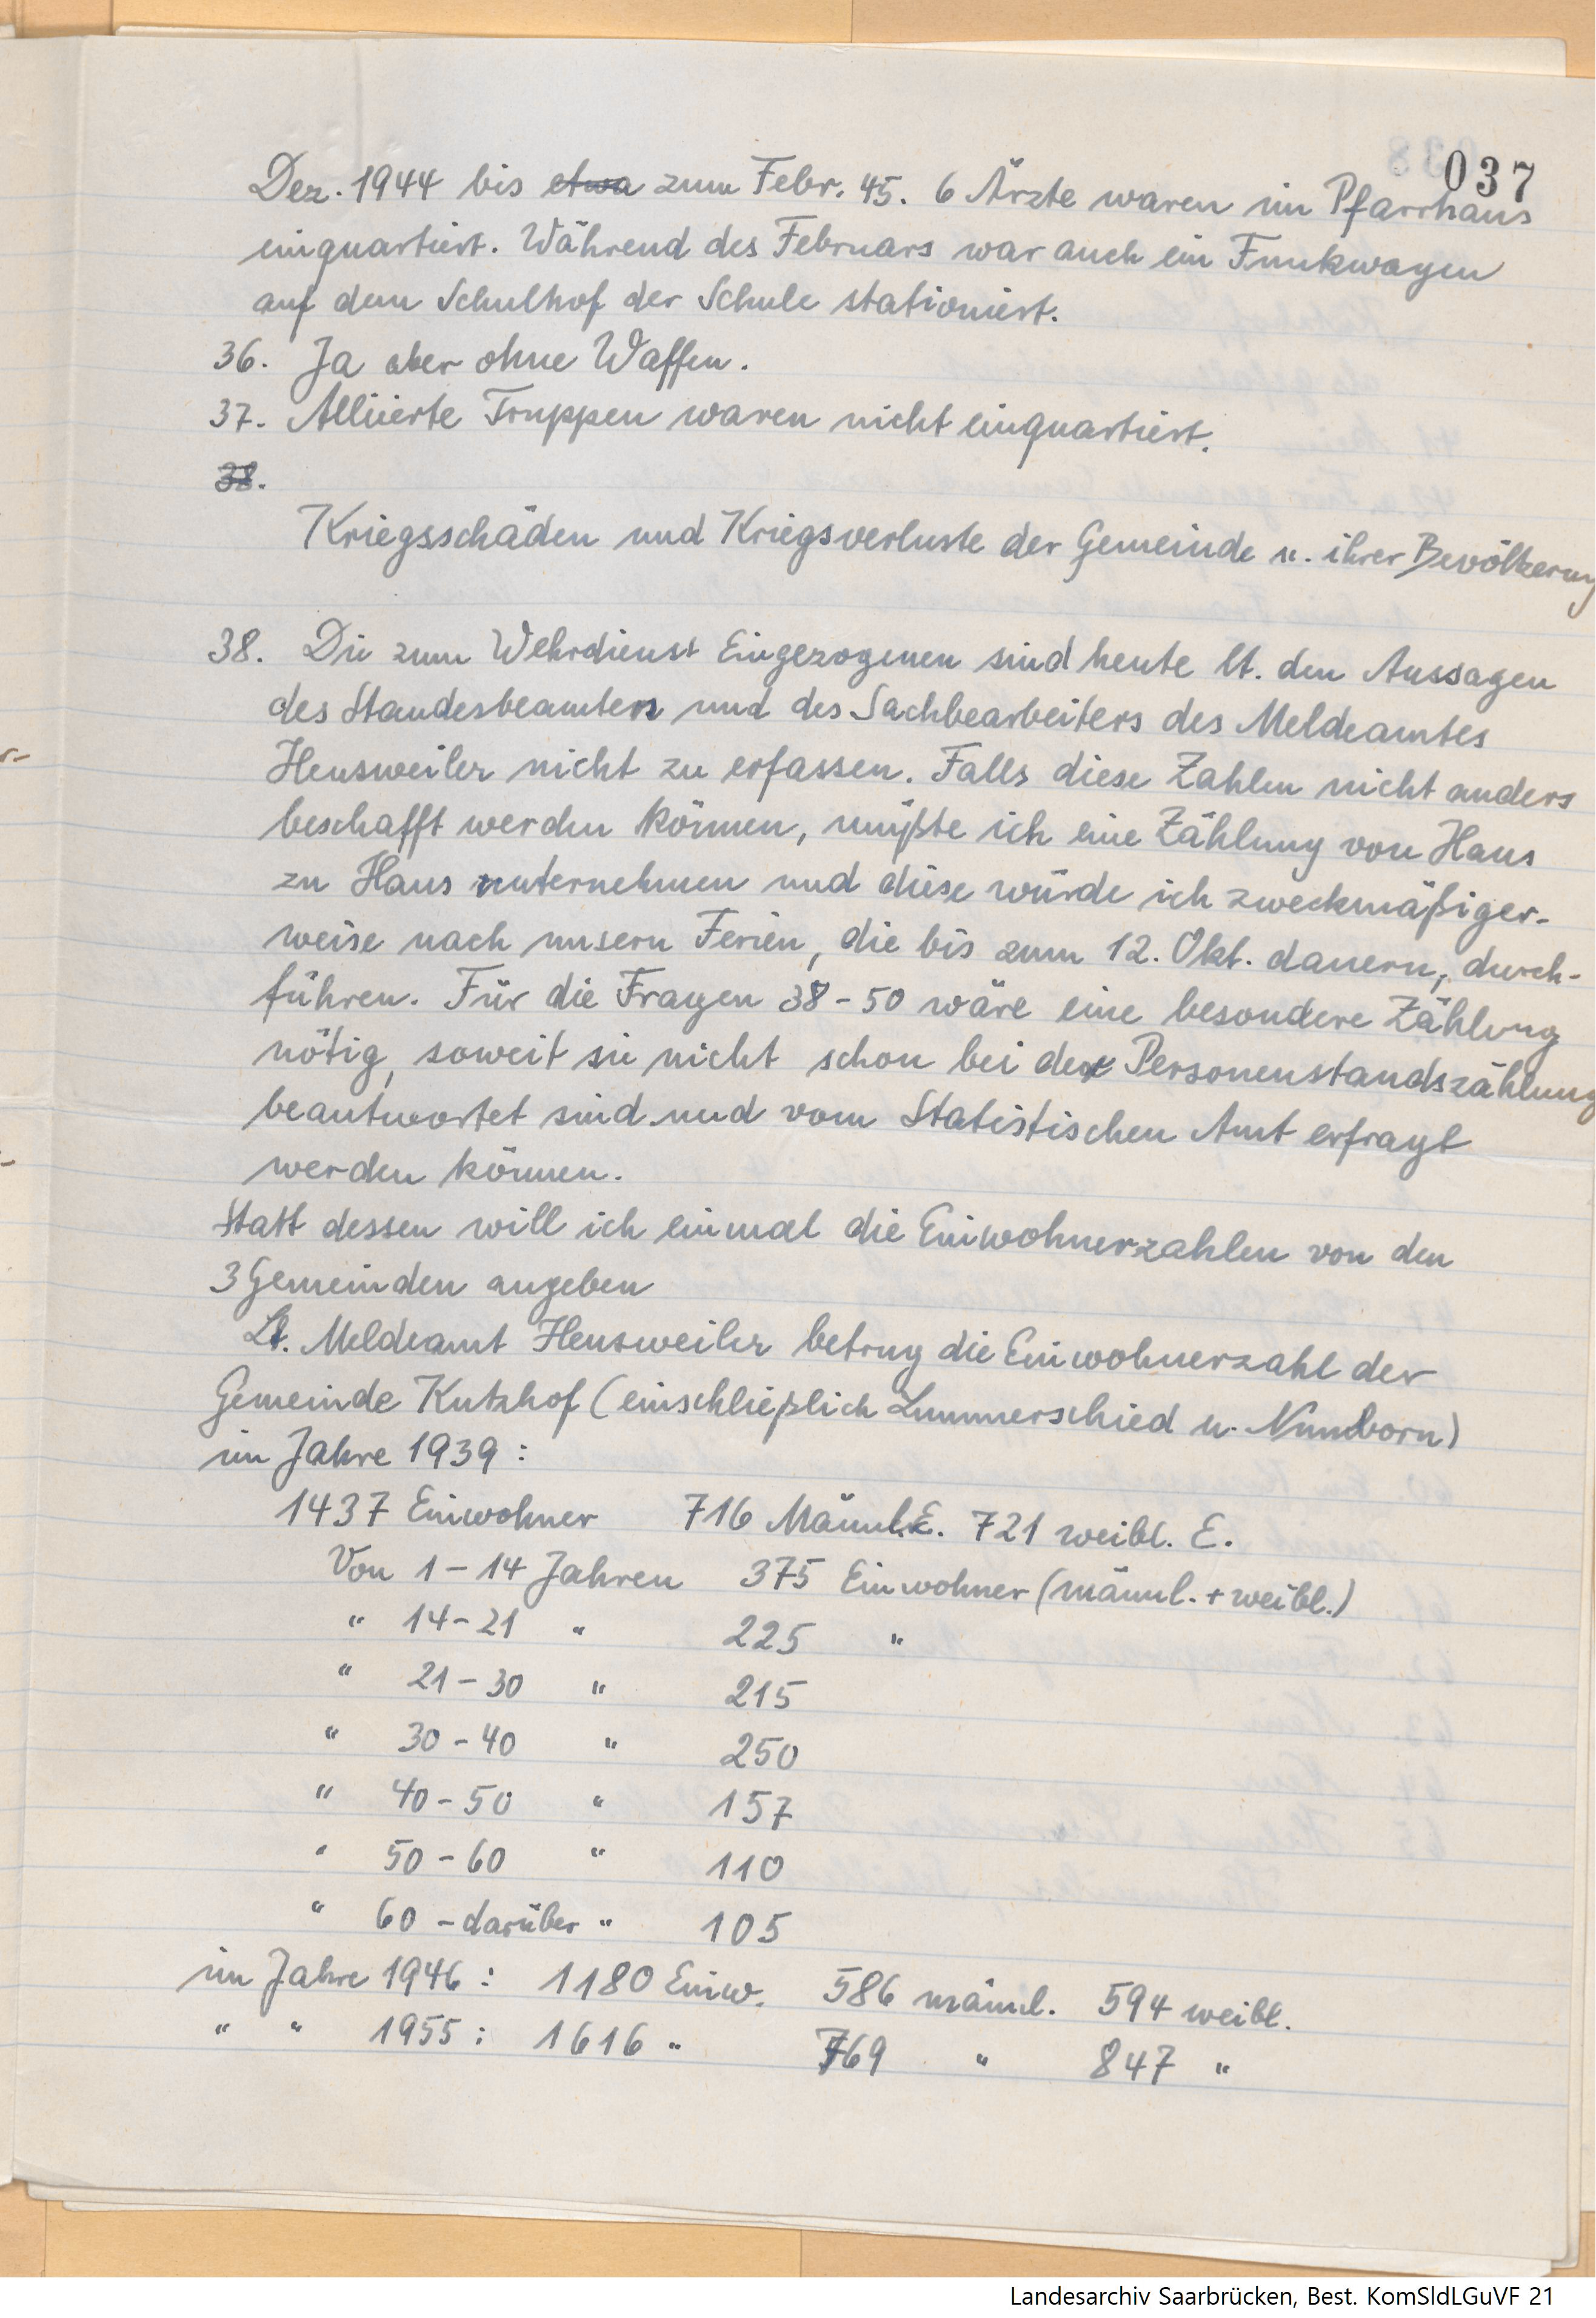 037
Dez. 1944 bis etwa zum Febr. 45. 6 Ärzte waren im Pfarrhaus
einquartiert. Während des Februars war auch ein Funkwagen
auf dem Schulhof der Schule stationiert.
36. Ja aber ohne Waffen.
37. Alliierte Truppen waren nicht einquartiert.
38.
Kriegsschäden und Kriegsverluste der Gemeinde u. ihrer Bevölkerung
38. Die zum Wehrdienst Eingezogenen sind heute lt. den Aussagen
des Standesbeamten und des Sachbearbeiters des Meldeamtes
Heusweiler nicht zu erfassen. Falls diese Zahlen nicht anders
beschafft werden können, müßte ich eine Zählung von Haus
zu Haus unternehmen und diese würde ich zweckmäßiger-
weise nach unsern Ferien, die bis zum 12. Okt. dauern, durch-
führen. Für die Fragen 38-50 wäre eine besondere Zählung
nötig, soweit sie nicht schon bei der Personenstandszählung
beantwortet sind und vom Statistischen Amt erfragt
werden können.
Statt dessen will ich einmal die Einwohnerzahlen von den
3 Gemeinden angeben
Lt. Meldeamt Heusweiler betrug die Einwohnerzahl der
Gemeinde Kutzhof (einschließlich Lummerschied u. Numborn)
im Jahre 1939:
1437 Einwohner 716 Männl. E. 721 weibl. E.
Von 1-14 Jahren 375 Einwohner (männl. + weibl.)
" 14-21 " 225 "
" 21-30 " 215
" 30-40 " 250
" 40-50 " 157
" 50-60 " 110
" 60-darüber " 105
im Jahre 1946: 1180 Einw. 586 männl. 594 weibl.
" " 1955: 1616 " 769 " 847 "
Landesarchiv Saarbrücken, Best. KomSldLGuVF 21